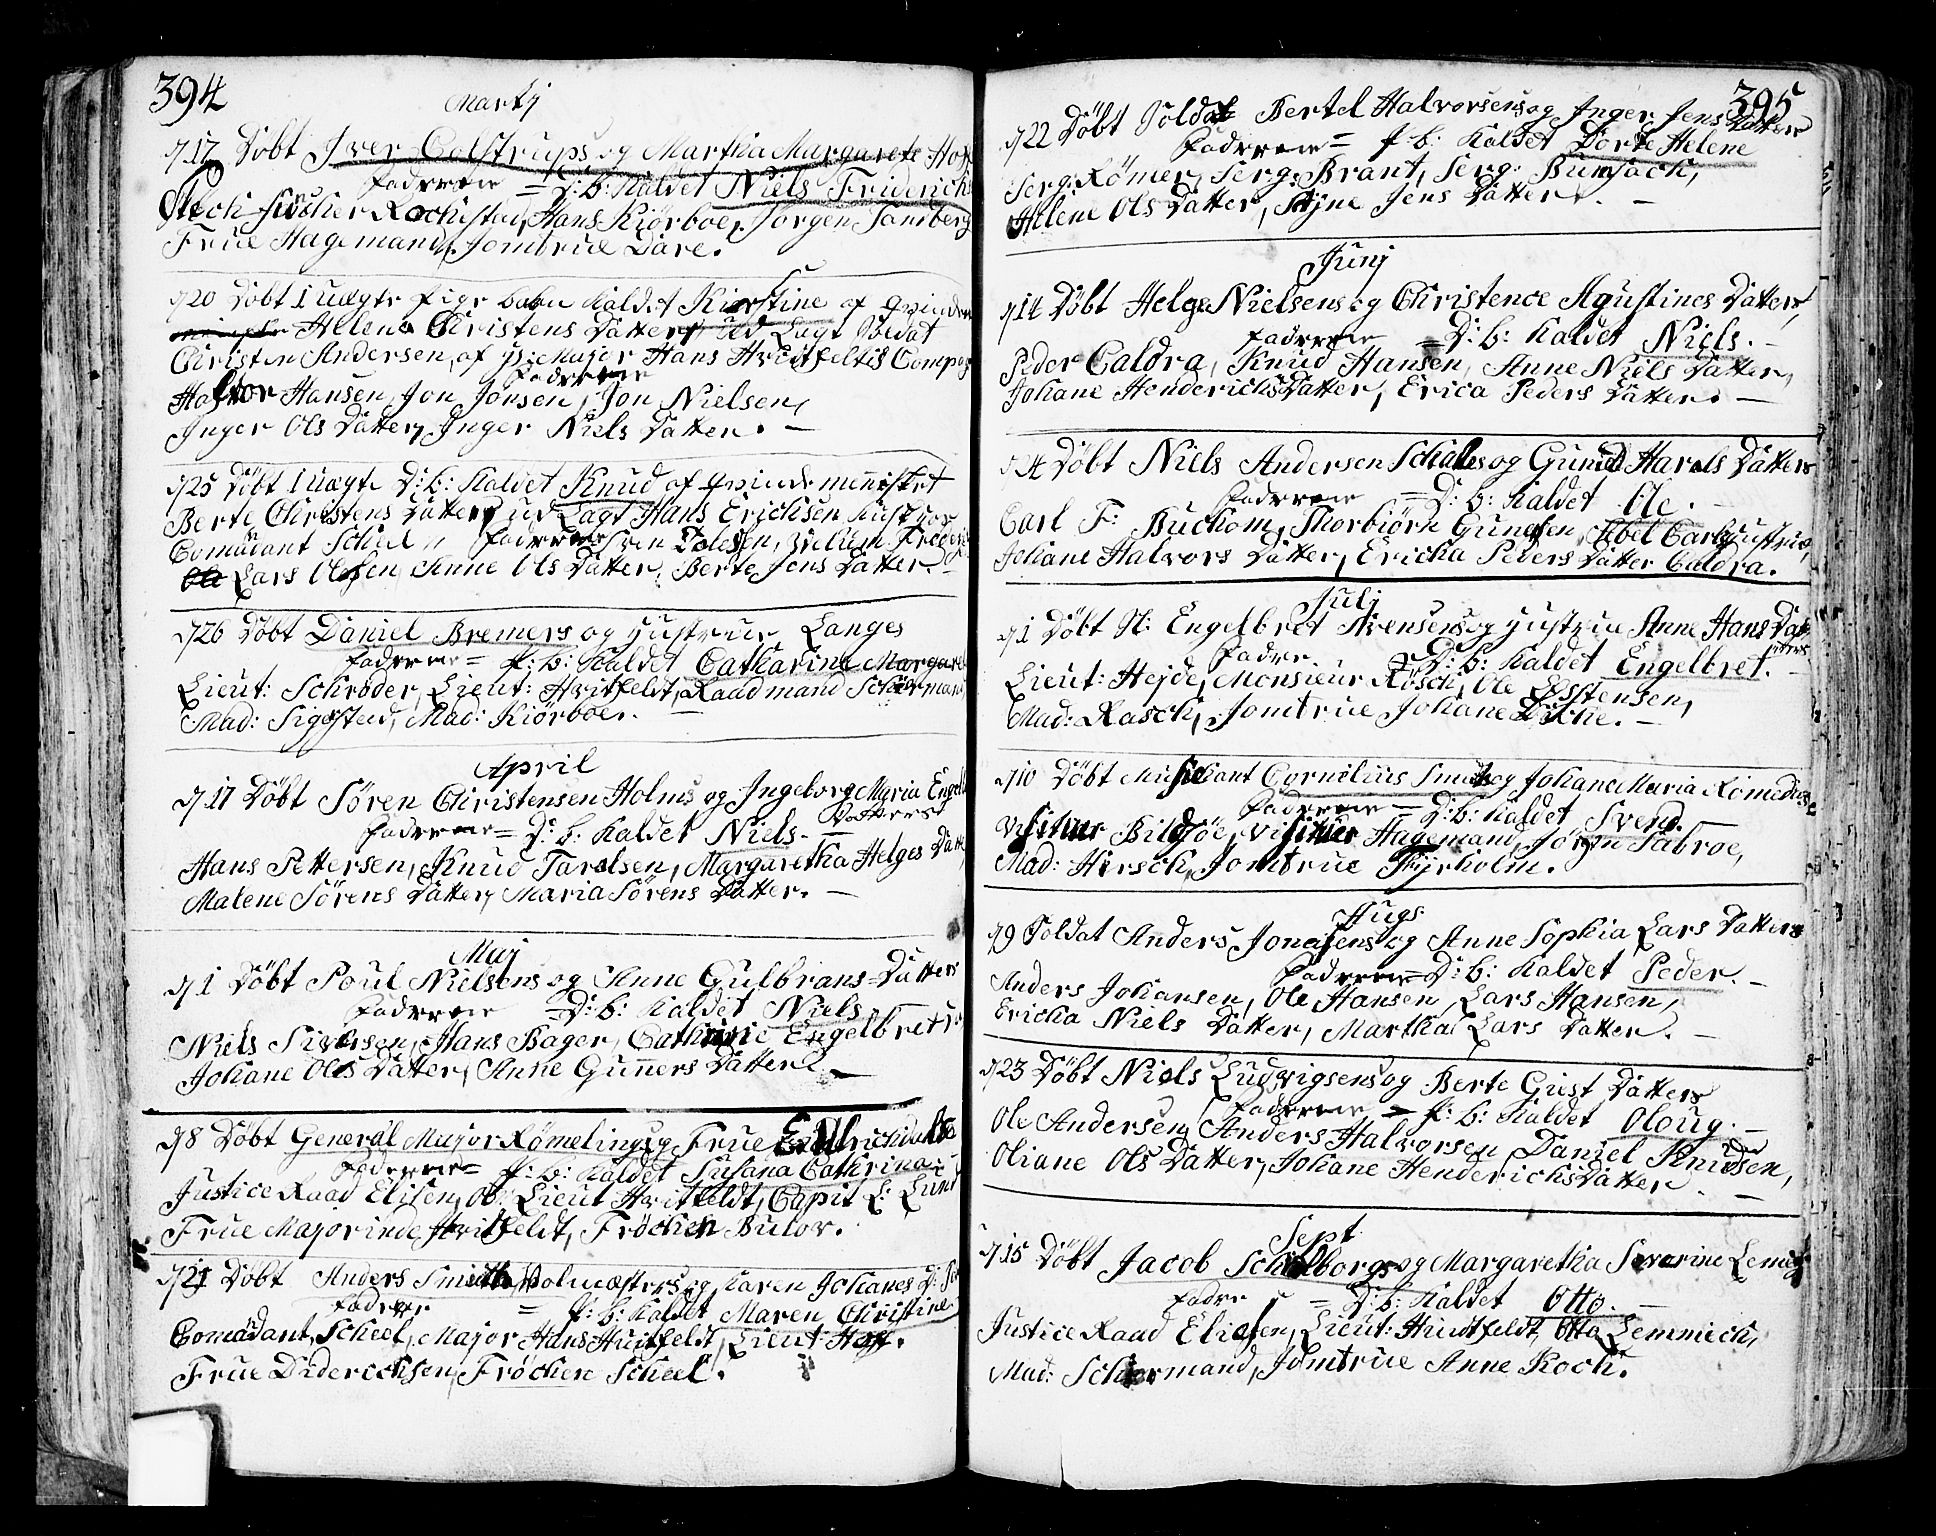 394
Martij
d 17 Döbt Iver Colstrups og Martha Margarete
Fadrene = D: b: Kaldet Niels Friderich
Rochistad, Hans Kiörboe, Jörgen Sandberg
Frue Hagemand, Jomfrue Dare.
d 20 Döbt 1 uægte Pige barn Kaldet Kirstine af qvinde
Helena Christens Datter, ud Lagt Sedat
Christen Andersen, af Hr: Major Hans Hvitfeltis Comp
Fadrene
Halvor Hansen, Jon Jonsen, Jon Nielsen,
Inger Ols Datter, Inger Niels Datter. –
d 25 Döbt 1 uægte D: b: Kaldet Knud af qvinde mennisket
Berte Christens Datter, ud Lagt Hans Erichsen
Comādant Scheel Fadrene Sven Tolesen,
Lars Olesen, Anne Ols Datter, Berte Jens Datter.
d 26 Döbt Daniel Bremers og Hustrue Langes
Fadrene = P: b: Kaldet Catharine Margare
Lieut: Schröder, Lieut: Hvitfeldt, Raadmand Schiermand
Mad: Sigstad, Mad: Kiörboe. –
April
d 17 Döbt Sören Christensen Holms og Ingeborg Maria Engel
Datters
Fadrene = D: b: Kaldet Niels. –
Hans Pettersen, Knud Tarelsen, Margaretha Helges Datt
Malene Sörens Datter, Maria Sörens Datter. –
Maj
d 1 Döbt Poul Nielsens og Anne Gulbrans-Datters
Fadrene = D: b: Kaldet Niels.
Niels Siversen, Hans Bager, Cathrine Engelbrets
Johane Ols Datter, Anne Gunners Datter. –
d 8 Döbt General Major Römelings og Frue
Fadrene = P: b: Kaldet Susana Cathrina.
Justice Raad Elisen, Ob: Lieut Hvitfeldt, Capit L: Lund
Frue Majorinde Hvitfeldt, Fröchen Bulov.
d 21 Döbt Anders Smidth og Karen Johanes D:
Fadrene = P: b: Kaldet Maren Christine
Comādant Scheel, Major Hans Huitfeldt, Lieut: Hoff.
Frue Diderichsen, Fröchen Scheel.
395
d 22 Döbt Soldat Bertel Halvorsens og Inger Jens Datter
Fadrene = P: b: Kaldet Dorte Helene
Serg: Römer, Serg: Brant, Serg: Bumsach,
Helene Ols Datter, Syne Jens Datter. –
Junj
d 14 Döbt Helge Nielsens og Christence Agustines Datters
Fadrene = D: b: Kaldet Niels. –
Peder Caldra, Knud Hansen, Anne Niels Datter,
Johane Henderichs Datter, Erica Peders Datter. –
d 24 Döbt Niels Andersen Schales og Guneld Harels Datters
Fadrene = D: b: Kaldet Ole. –
Carl F: Buchom, Thorbiörn Gunesen, Abel Carl
Johane Halvors Datter, Ericha Peders Datter Caldra.
Julj
d 1 Döbt H: Engelbret Svensens og Hustrue Anne Hans Dat
ters
Fadre = D: b: Kaldet Engelbret. –
Lieut: Hejde, Monsieur Rösch, Ole Estensen,
Mad: Rasch, Jomfrue Johane –
d 10 Döbt Musiciant Cornelius Smith og Johane Maria Romedals
Fadrene = D: b: Kaldet Svend.
Visiteur Bildsöe, Visiteur Hagemand, Jörgen Sabroe,
Mad: Hirsch, Jomfrue Fyrholm.
Augs
d 9 Soldat Anders Jonasens og Anne Sophia Lars Datters
Fadrene = D: b: Kaldet Peder. –
Anders Johansen, Ole Hansen, Lars Hansen,
Ericka Niels Datter, Martha Lars Datter. –
d 23 Döbt Niels Ludvigsens og Berte Giest Datters
Fadrene = P: b: Kaldet Oloug. –
Ole Andersen, Anders Halvorsen, Daniel Knudsen,
Oliane Ols Datter, Johane Henderichs Datter. –
Sept
d 15 Döbt Jacob Schelborgs og Margaretha Severine Lemechs
Fadre = D: b: Kaldet Otto. –
Justice Raad Elisen, Lieut: Huidtfeldt, Otto Lemmech,
Mad: Schiermand, Jomfrue Anne Koch.